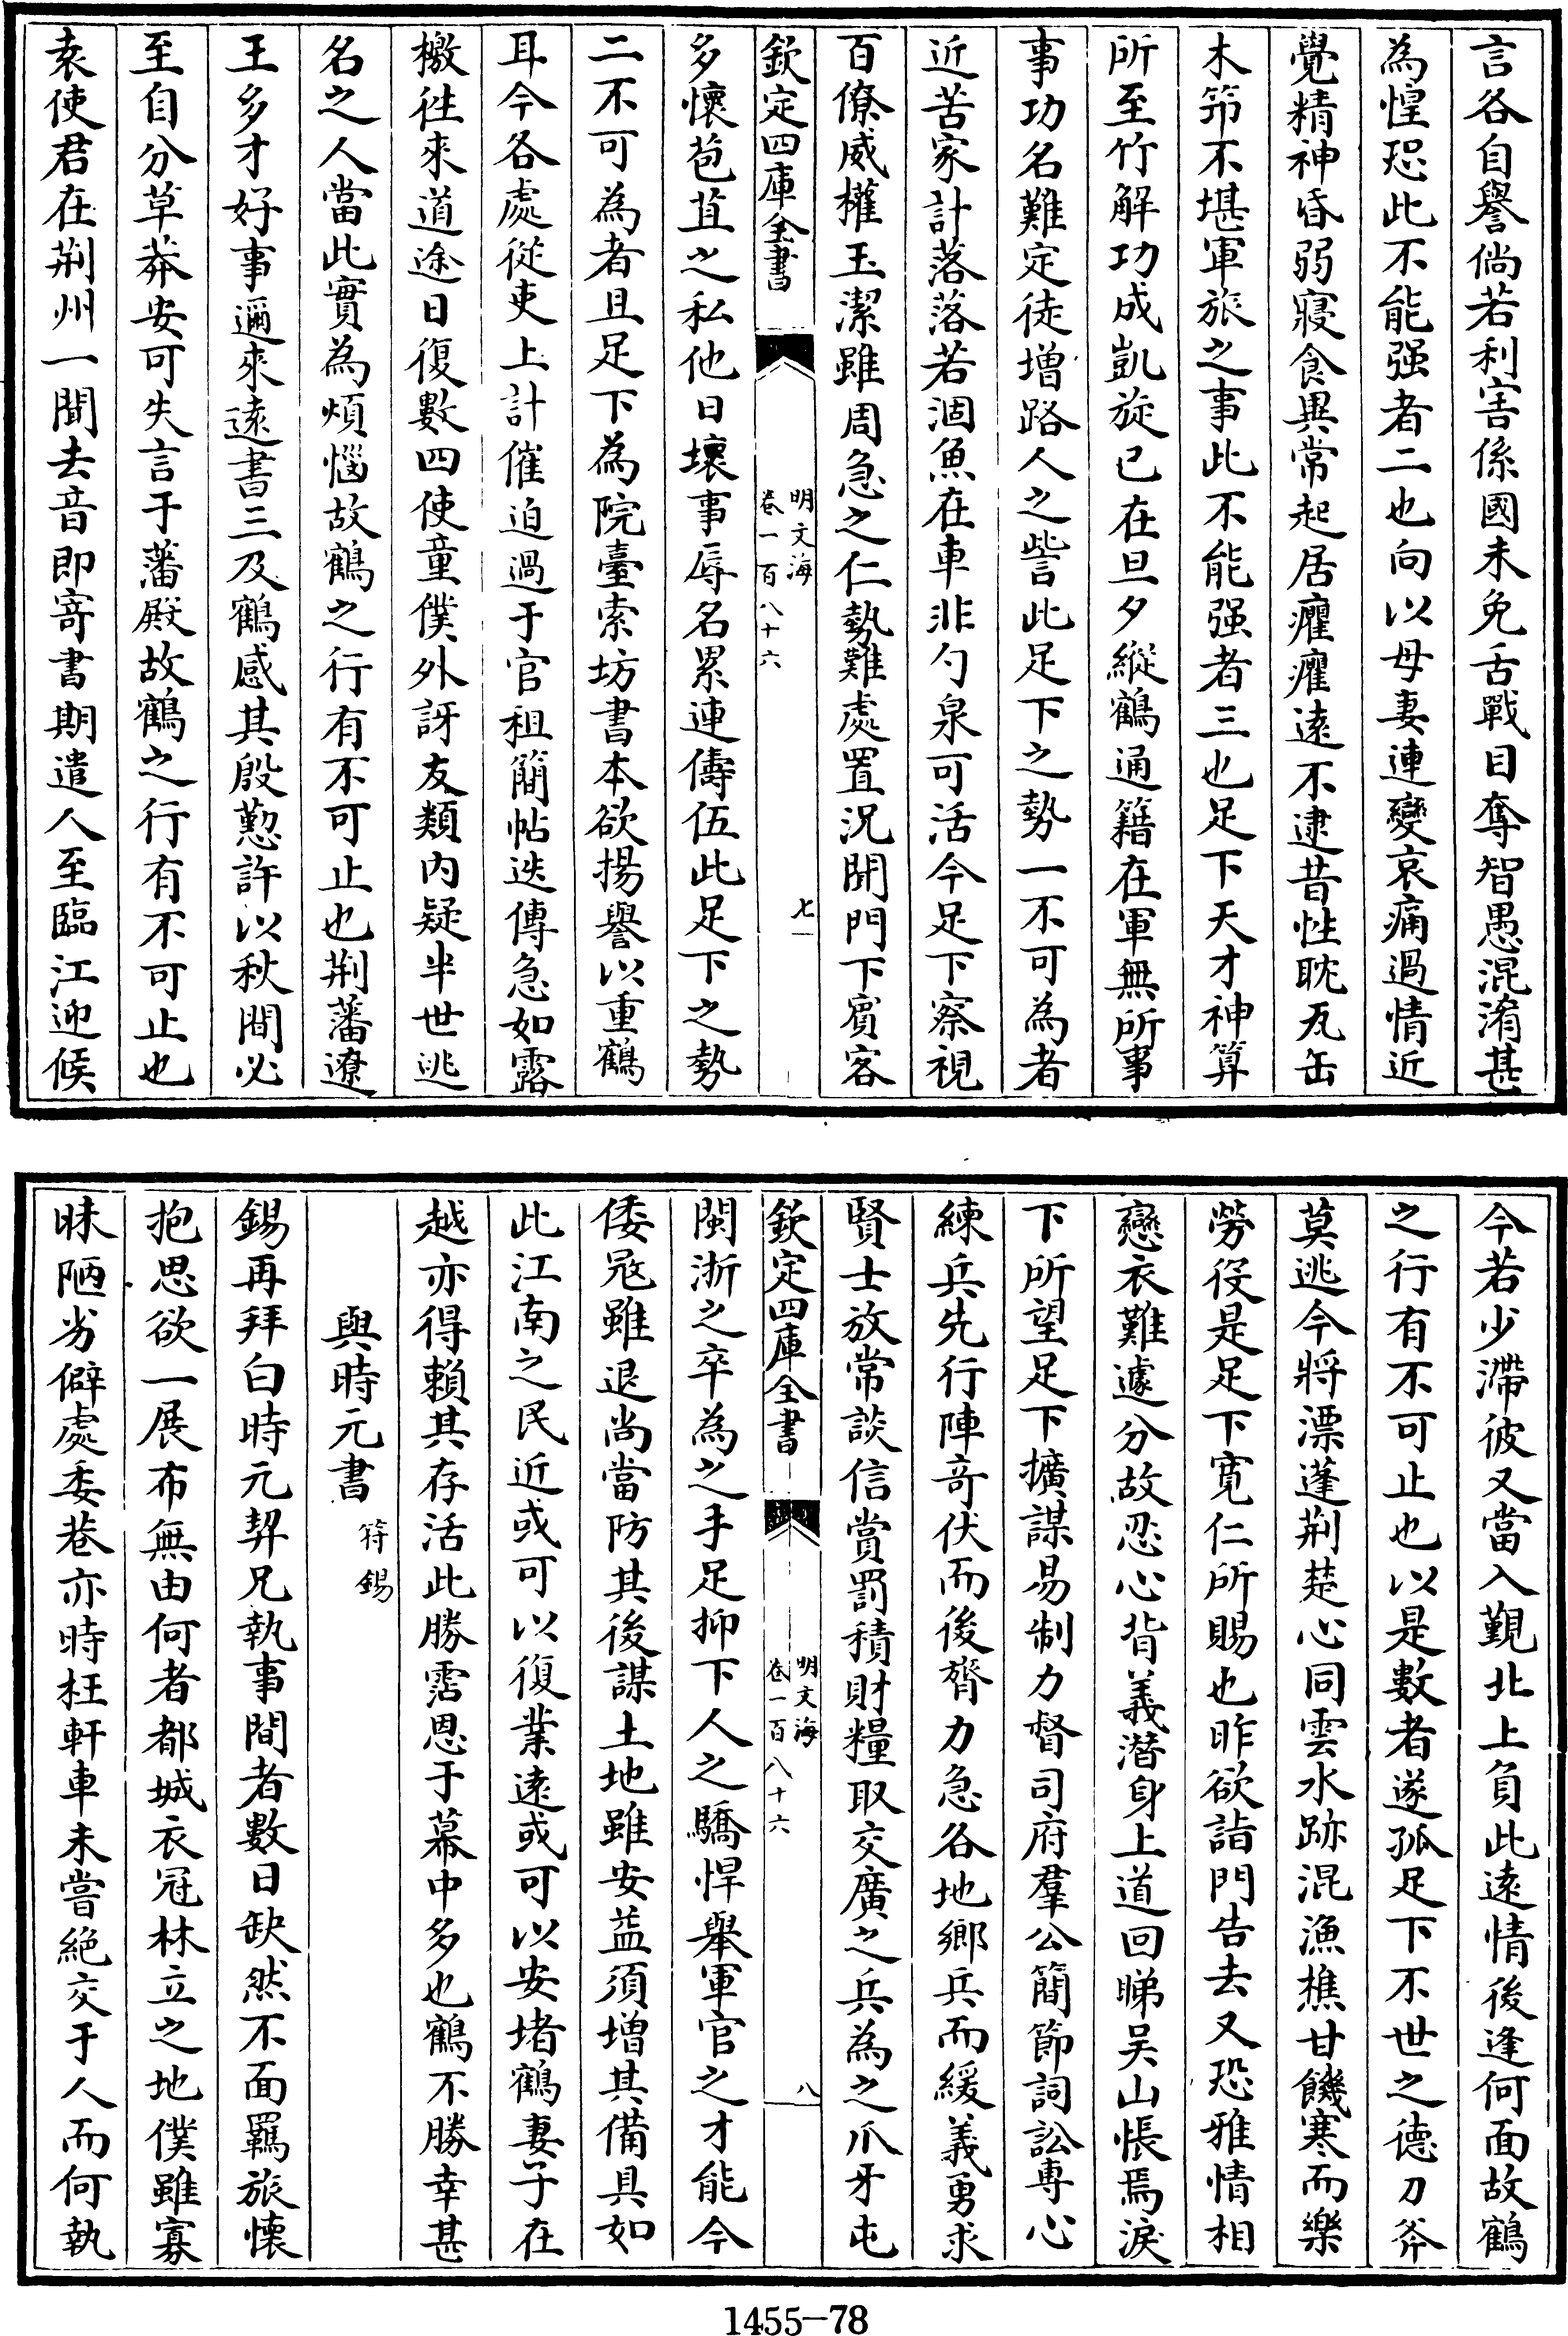 言各自譽倘若利害係國未免舌戰目奪智愚混淆甚
為惶恐此不能强者二也向以母妻連變哀痛過情近
覺精神昏弱寢食異常起居癯癯遠不逮昔性耽瓦缶
木笻不堪軍旅之事此不能强者三也足下天才神算
所至竹解功成凱旋已在旦夕縱鶴通籍在軍無所事
事功名難定徒增路人之訾此足下之勢一不可為者
近苦家計落落若涸魚在車非勺泉可活今足下察視
百僚威權玉潔雖周急之仁勢難處置況閉門下賓客
欽定四庫全書
明文海
卷一百八十六
七
多懷苞苴之私他日壞事辱名累連儔伍此足下之勢
二不可為者且足下為院臺索坊書本欲揚譽以重鶴
耳今各處從吏上計催迫過于官租簡帖迭傳急如露
檄往來道途日復數四使童僕外訝友類內疑半世逃
名之人當此實為煩惱故鶴之行有不可止也荆藩遼
王多才好事邇來遠書三及鶴感其殷懃許以秋間必
至自分草莽安可失言于藩殿故鶴之行有不可止也
袁使君在荆州一聞去音即寄書期遣人至臨江迎候
今若少滯彼又當入覲北上負此遠情後逢何面故鶴
之行有不可止也以是數者遂孤足下不世之德刀斧
莫逃今將漂蓬荆楚心同雲水跡混漁樵甘饑寒而樂
勞役是足下寛仁所賜也昨欲詣門告去又恐雅情相
戀衣難遽分故忍心背義潛身上道回睇吴山悵焉淚
下所望足下擴謀易制力督司府羣公簡節詞訟專心
練兵先行陣竒伏而後膂力急各地鄉兵而緩義勇求
賢士放常談信賞罰積財糧取交廣之兵為之爪牙屯
欽定四庫全書
明文海
卷一百八十六
八
閩浙之卒為之手足抑下人之驕悍舉軍官之才能今
倭㓂雖退尚當防其後謀土地雖安益須增其備具如
此江南之民近或可以復業遠或可以安堵鶴妻子在
越亦得賴其存活此勝霑恩于幕中多也鶴不勝幸甚
與時元書 符錫
錫再拜白時元契兄執事間者數日缺然不面羈旅懷
抱思欲一展布無由何者都城衣冠林立之地僕雖寡
昧陋劣僻處委巷亦時枉軒車未嘗絕交于人而何執
1455-78